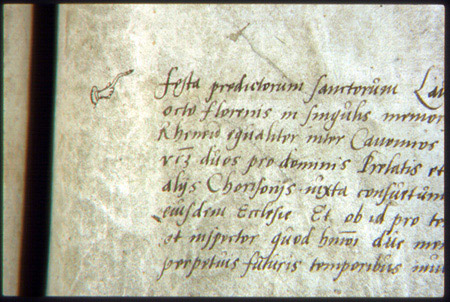 festa predictorum sanctorum Lau
octo florenis in singulis memor
Rheneñ equaliter inter Canonicos
vcz duos pro dominis Prelatis et
alijs Chorisonis iuxta consuetum
eiusdem Ecclesie Et ob id pro te
et inspector quod hmõi due mem
perpetuis futuris temporibus